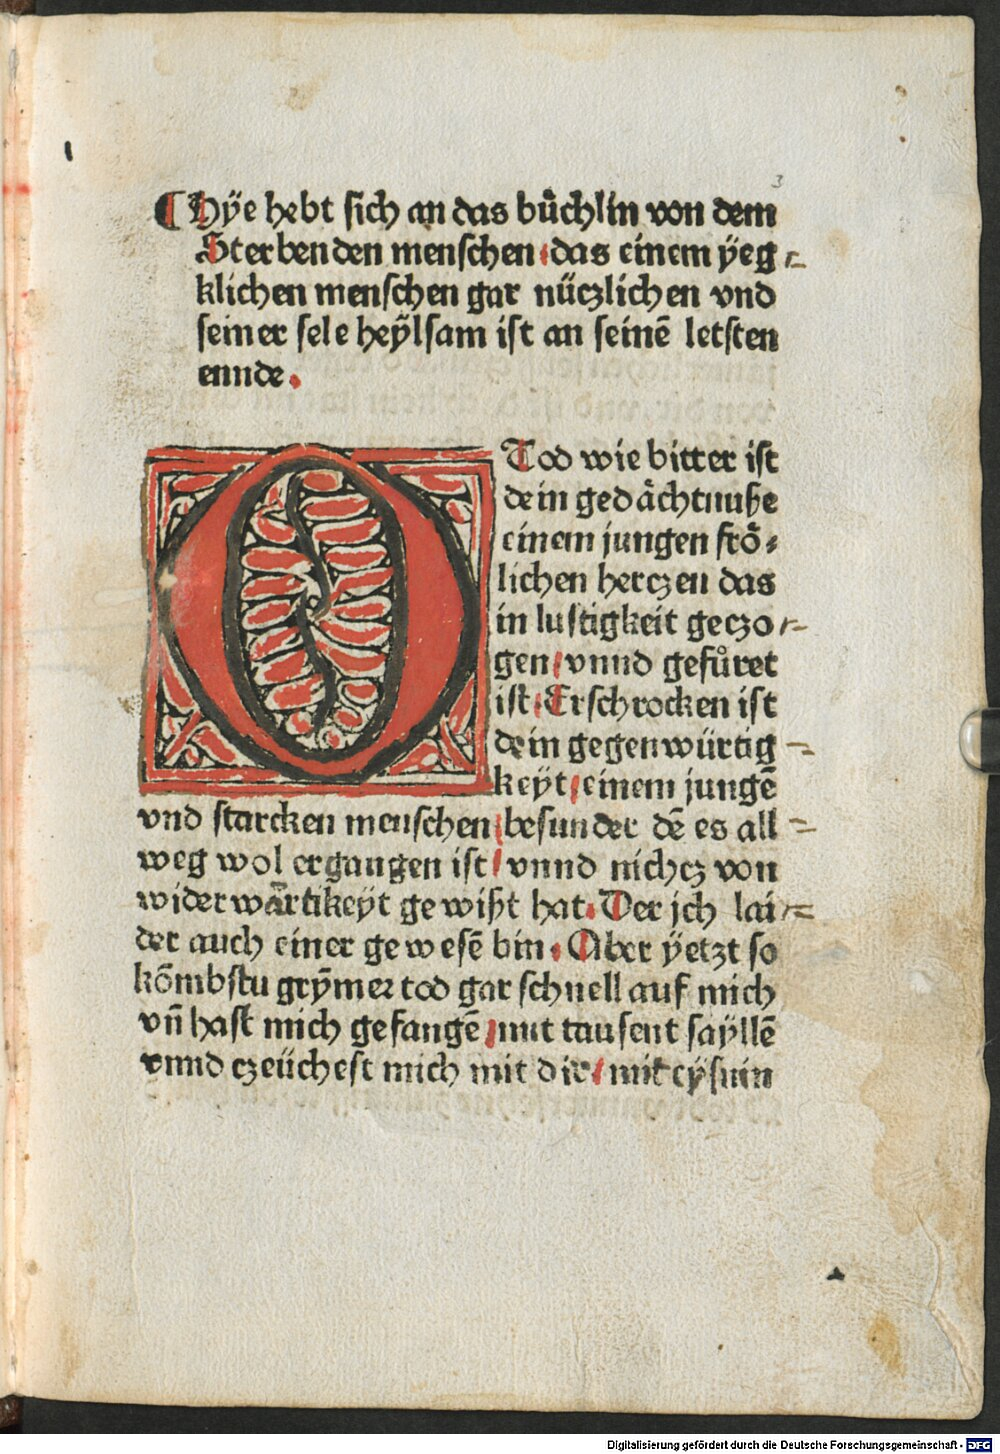 ¶ Hÿe hebt sich an das bůchlin von dem
Sterbenden menschen·das einem ÿeg⸗
klichen menschen gar nüczlichen vnd
seiner sele heÿlsam ist an seinē letsten
ennde.
O Tod wie bitter ist
dein gedåchtnuße
einem jungen frô⸗
lichen herczen das
in lustigkeit geczo⸗
gen/vnnd gefůret
ist·Erschrocken ist
dein gegenwürtig⸗
keÿt/einem jungē
vnd starcken menschen/besunder dē es all⸗
weg wol ergangen ist/vnnd nichcz von
widerwårtikeÿt gewißt hat·Der jch lai⸗
der auch einer gewesē bin·Aber ÿetzt so
kōmbstu grÿm̄er tod gar schnell auf mich
vn̄ hast mich gefangē/mit tausent saÿllē
vnnd czeüchest mich mit dir/mit eÿsnin
3
Digitalisierung gefördert durch die Deutsche Forschungsgemeinschaft - DFG